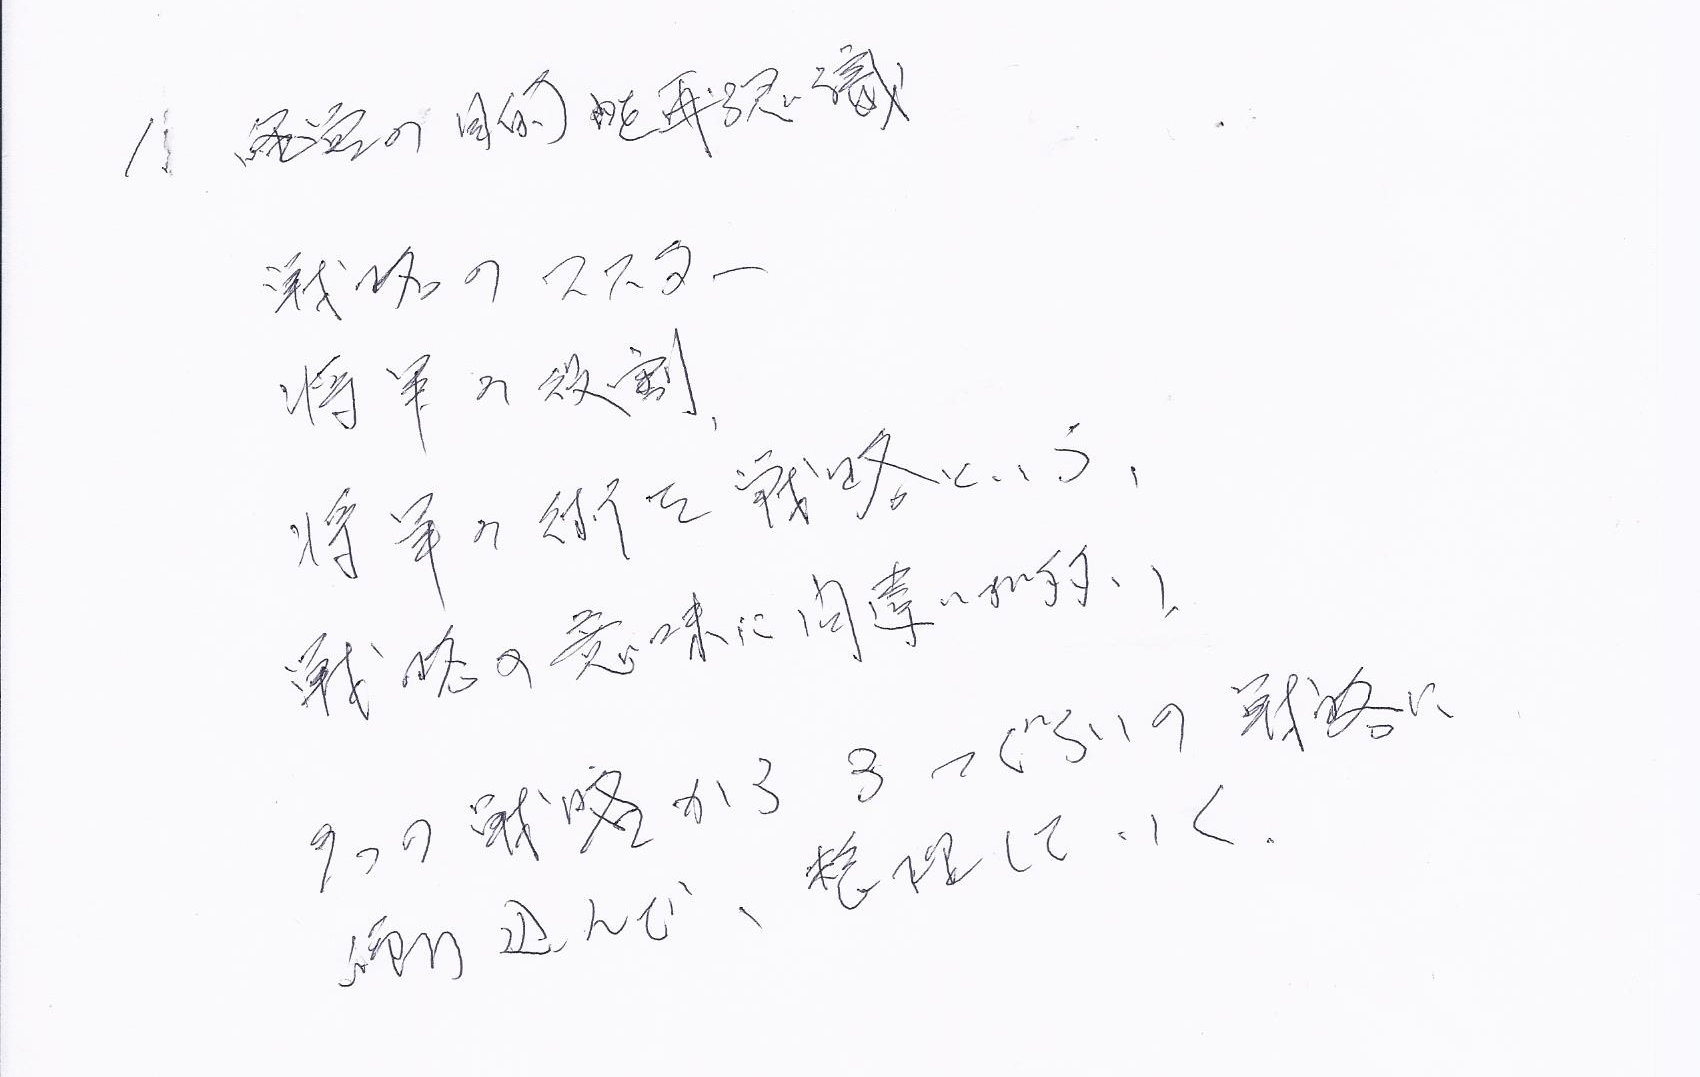 1 経営の目的を再認識
戦略のマスター
将軍の役割、
将軍の術を戦略という、
戦略の意味に間違いが多い、
9つの戦略から3つぐらいの戦略に
絞り込んで、整理していく.